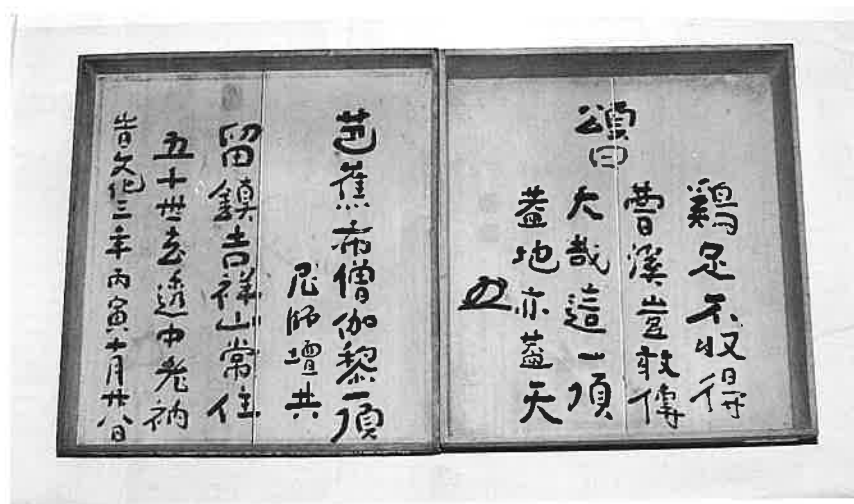 頌曰
鶏足不収得
曹溪豈敢傳
大哉這一頂
葢地亦葢天
芭蕉布僧伽黎一頂
尼師壇共
留鎮吉祥山常住
五十世玄透中老衲
旹文化三年丙寅十月廿八日